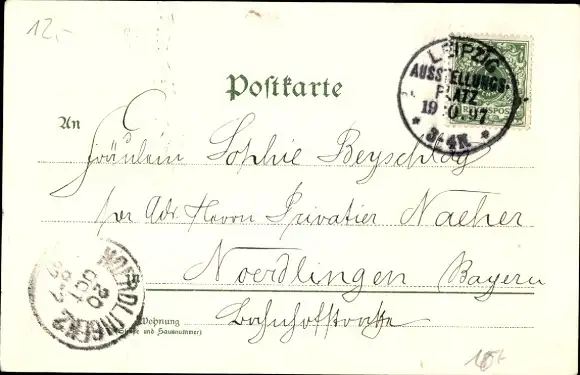 12,-
LEIPZIG
AUSSTELLUNGS-
PLATZ
19.10.97
3-4N
REICHSPOST
Postkarte
An
Fräulein Sophie Beyschlag
per Adr. Herrn Privatier Naeher
in Noerdlingen Bayern
Wohnung
(Straße und Hausnummer)
Bahnhofstraße
NOERDLINGEN 2
20
OCT